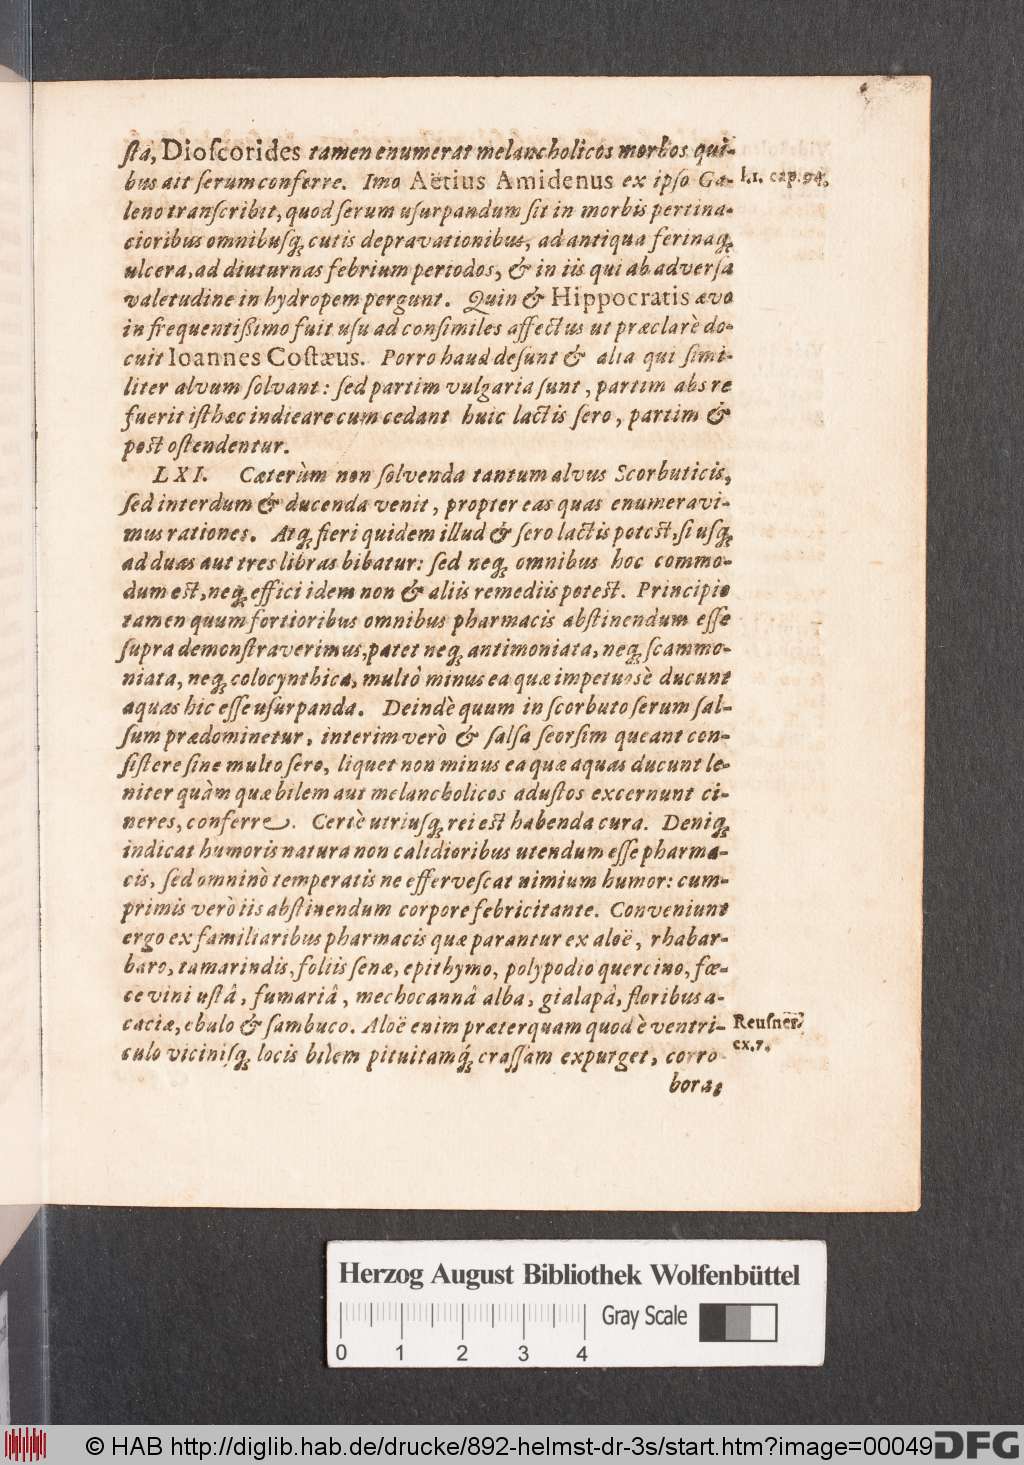 ſta, Dioſcorides tamen enumerat melancholicos morbos qui-
bus ait ſerum conferre. Imo Aëtius Amidenus ex ipſo Ga-
l. 1. cap. 94.
leno tranſcribit, quod ſerum uſurpandum ſit in morbis pertina-
cioribus omnibuſq́; cutis depravationibus, ad antiqua ferinaq́;
ulcera, ad diuturnas febrium periodos, & in iis qui ab adverſa
valetudine in hydropem pergunt. Quin & Hippocratis ævo
in frequentißimo fuit uſu ad conſimiles affectus ut præclarè do-
cuit Ioannes Coſtæus. Porro haud deſunt & alia qui ſimi-
liter alvum ſolvant: ſed partim vulgaria ſunt, partim abs re
fuerit iſthæc indicare cum cedant huic lactis ſero, partim &
poſt oſtendentur.
LXI. Cæterùm non ſolvenda tantum alvus Scorbuticis,
ſed interdum & ducenda venit, propter eas quas enumeravi-
mus rationes. Atq; fieri quidem illud & ſero lactis poteſt, ſi uſq;
ad duas aut tres libras bibatur: ſed neq; omnibus hoc commo-
dum eſt, neq; effici idem non & aliis remediis poteſt. Principio
tamen quum fortioribus omnibus pharmacis abſtinendum eſſe
ſupra demonſtraverimus, patet neq; antimoniata, neq; ſcammo-
niata, neq; colocynthica, multò minus ea quæ impetuosè ducunt
aquas hic eſſe uſurpanda. Deindè quum in ſcorbuto ſerum ſal-
ſum prædominetur, interim verò & ſalſa ſeorſim queant con-
ſiſtere ſine multo ſero, liquet non minus ea quæ aquas ducunt le-
niter quàm quæ bilem aut melancholicos aduſtos excernunt ci-
neres, conferre. Certè utriuſq; rei eſt habenda cura. Deniq;
indicat humoris natura non calidioribus utendum eſſe pharma-
cis, ſed omninò temperatis ne efferveſcat nimium humor: cum-
primis verò iis abſtinendum corpore febricitante. Conveniunt
ergo ex familiaribus pharmacis quæ parantur ex aloë, rhabar-
baro, tamarindis, foliis ſenæ, epithymo, polypodio quercino, fœ-
ce vini uſtâ, fumariâ, mechocannâ alba, gialapâ, floribus a-
caciæ, ebulo & ſambuco. Aloë enim præterquam quod è ventri-
Reuſner.
ex. 7.
culo viciniſq; locis bilem pituitamq́; craſſam expurget, corro
bora;
Herzog August Bibliothek Wolfenbüttel
Gray Scale
0 1 2 3 4
© HAB http://diglib.hab.de/drucke/892-helmst-dr-3s/start.htm?image=00049
DFG